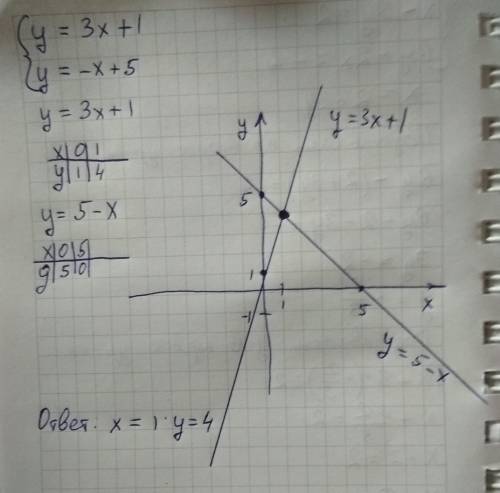 { y = 3x+1
y = -x+5
y = 3x+1
x | 0 | 1
y | 1 | 4
y = 5-x
x | 0 | 5
y | 5 | 0
y
y=3x+1
5
1
1
5
x
-1
y = 5-x
Ответ: x = 1; y = 4